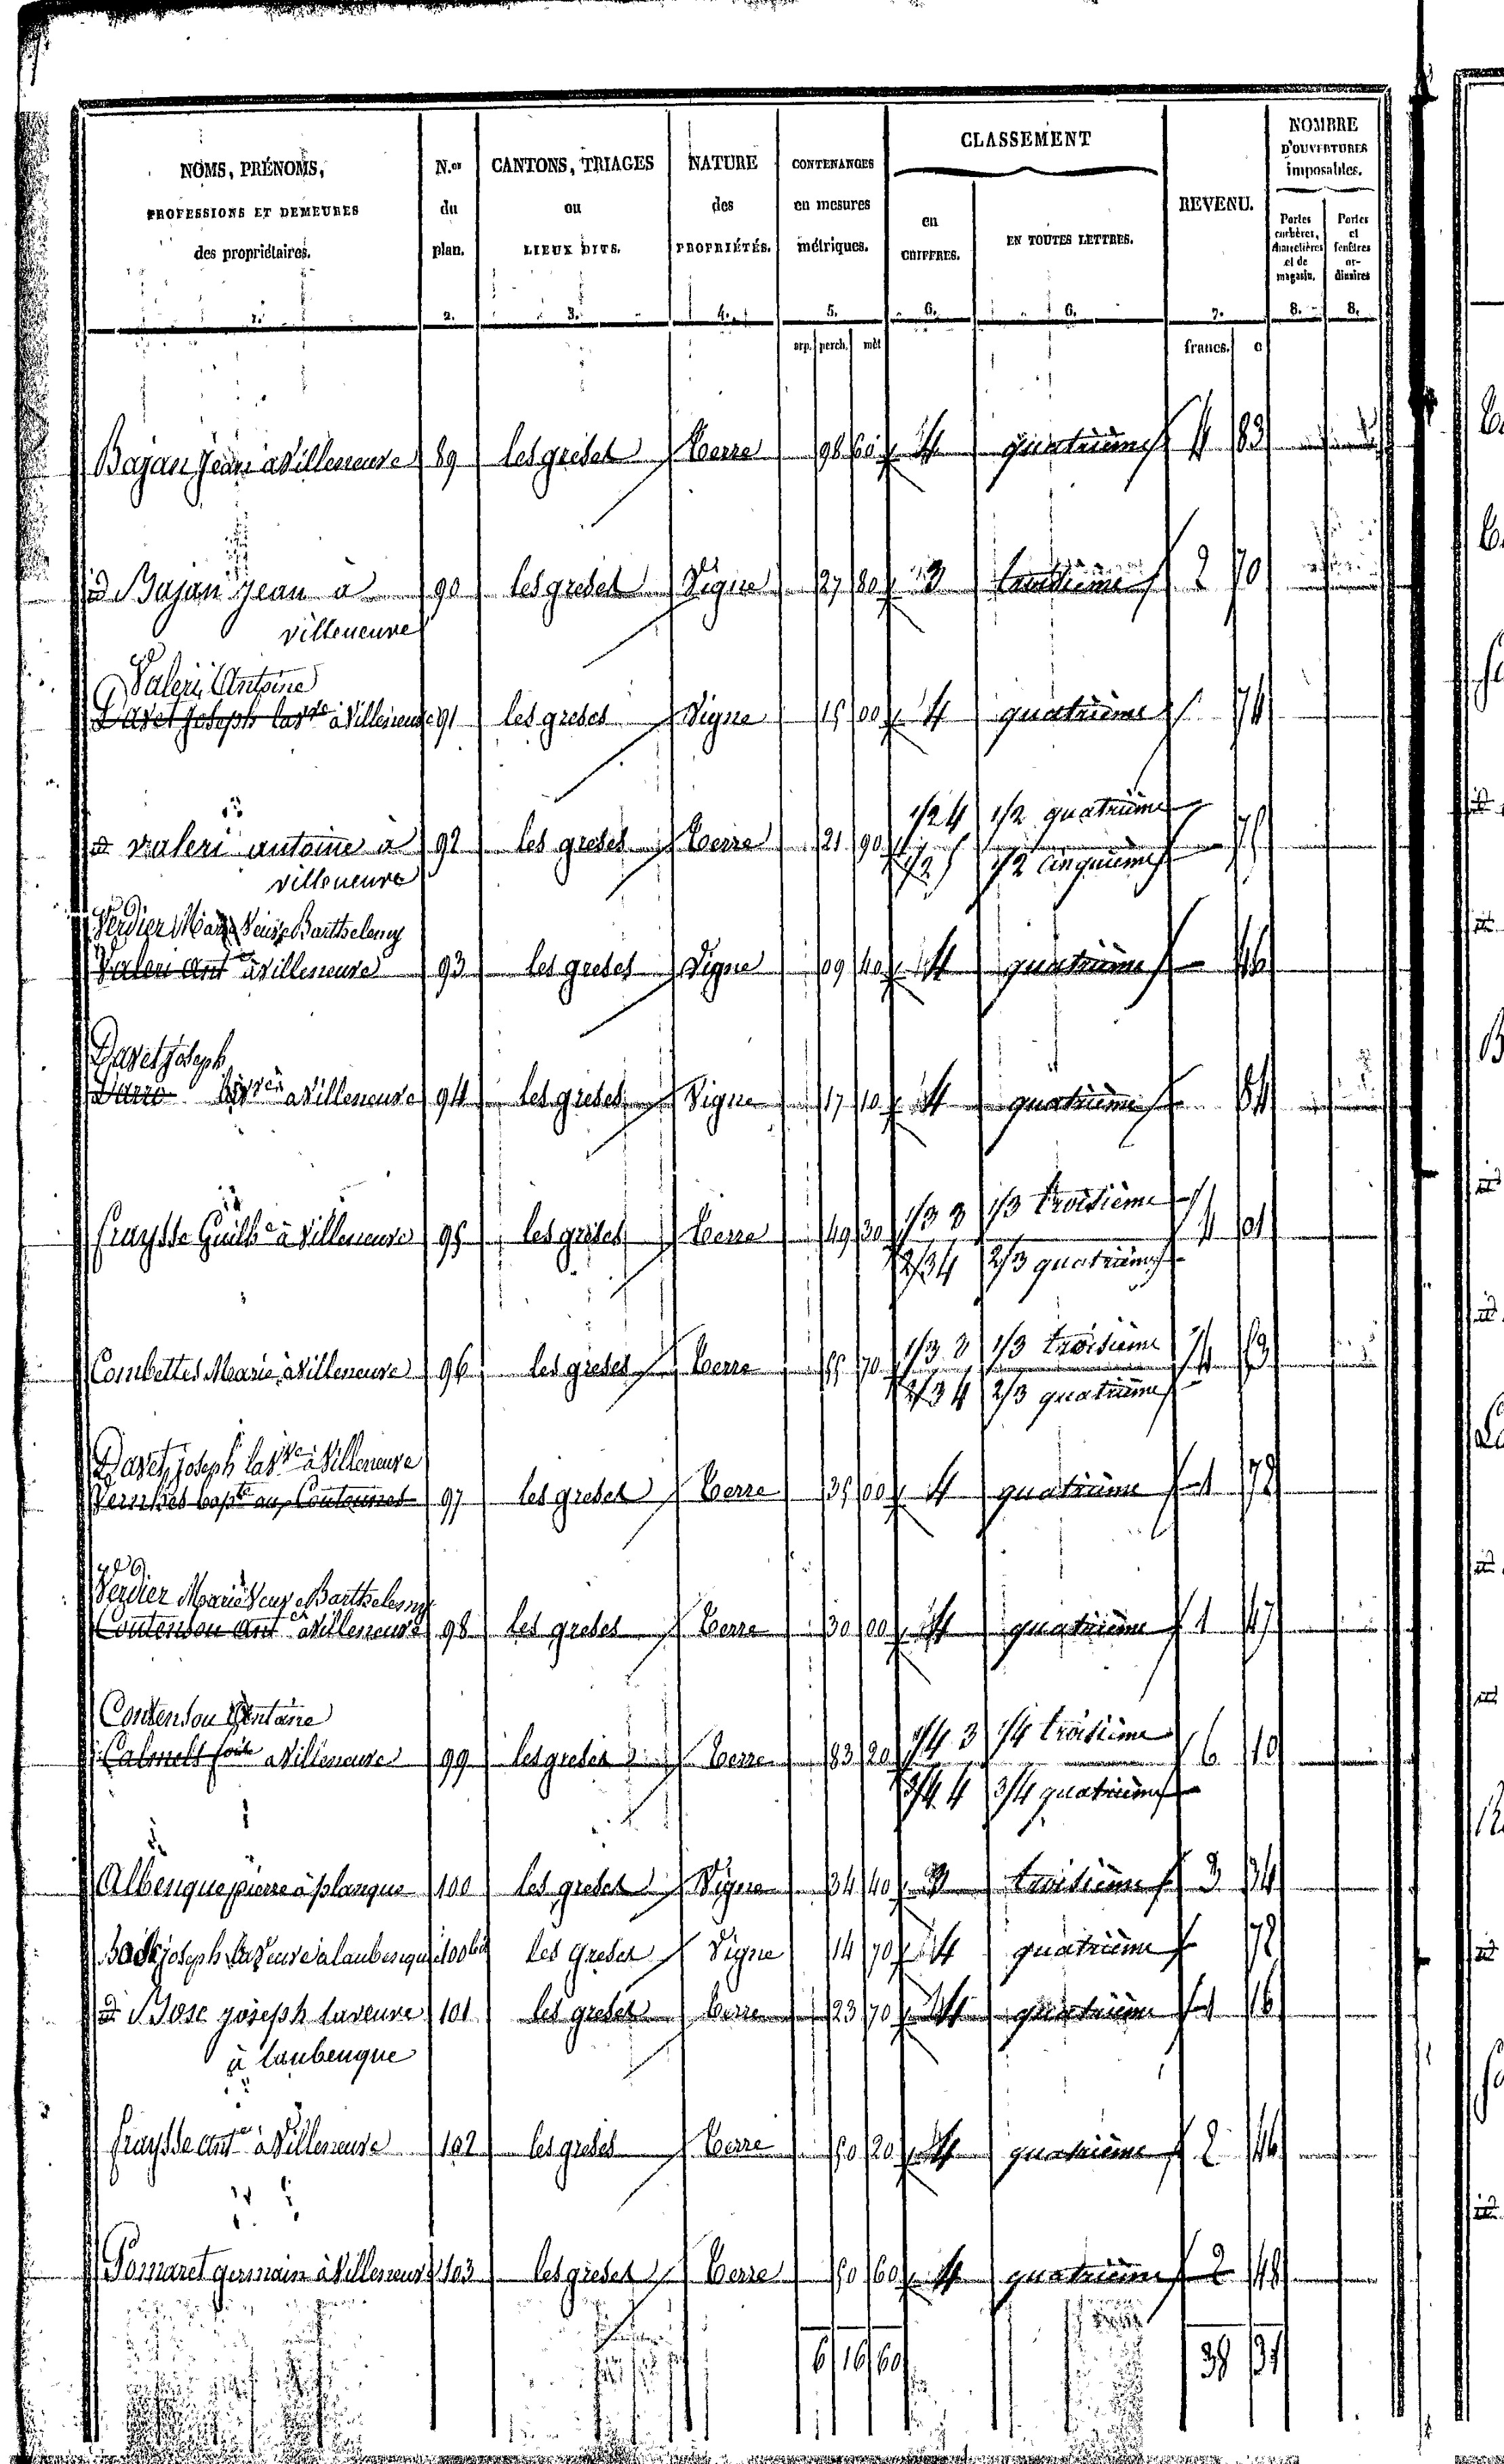 NOMS, PRÉNOMS, PROFESSIONS ET DEMEURES des propriétaires. 1.
N.os du plan. 2.
CANTONS, TRIAGES ou LIEUX DITS. 3.
NATURE des PROPRIÉTÉS. 4.
CONTENANCES en mesures métriques. 5.
CLASSEMENT
en CHIFFRES. 6.
EN TOUTES LETTRES. 6.
REVENU. 7.
NOMBRE D'OUVERTURES imposables.
Portes cochères, charretières et de magasin. 8.
Portes et fenêtres ordinaires 8.
arp. perch. mèt francs. c
Bajan Jean à Villeneuve 89 les greses Terre 98 60 4 quatrième 4 83
id Bajan Jean à 90 les greses Vigne 27 80 3 troisième 2 70
villeneuve
Valeri Antoine
Davet Joseph la Ve à Villeneuve 91 les greses Vigne 15 00 4 quatrième 74
1/2 4 1/2 quatrième
id Valeri antoine à 92 les greses Terre 21 90 75
1/2 5 1/2 cinquième
villeneuve
Verdier Marie Veuve Barthelemy
Valeri Ant à Villeneuve 93 les greses Vigne 09 40 4 quatrième 46
Davet Joseph
à Villeneuve 94 les greses Vigne 17 10 4 quatrième 84
1/3 3 1/3 troisième
fraysse Guilhe à Villeneuve 95 les greses Terre 49 30 4 01
2/3 4 2/3 quatrième
1/3 3 1/3 troisième
Combettes Marie à Villeneuve 96 les greses Terre 55 70 4 53
2/3 4 2/3 quatrième
Davet Joseph la Ve à Villeneuve
97 les greses Terre 35 00 4 quatrième 1 72
Verdier Marie Veuve Barthelemy
Contensou Ant à Villeneuve 98 les greses Terre 30 00 4 quatrième 1 47
Contensou Antoine
1/4 3 1/4 troisième
Calmels à Villeneuve 99 les greses Terre 83 20 6 10
3/4 4 3/4 quatrième
Albenque pierre à planque 100 les greses Vigne 34 40 3 troisième 3 34
Bosc joseph la Veuve à laubenque 100 bis les greses Vigne 14 70 4 quatrième 72
id Bosc joseph la veuve 101 les greses Terre 23 70 4 quatrième 1 16
à laubenque
fraysse ante à Villeneuve 102 les greses Terre 50 20 4 quatrième 2 46
Pomaret germain à Villeneuve 103 les greses Terre 50 60 4 quatrième 2 48
6 16 60 38 31